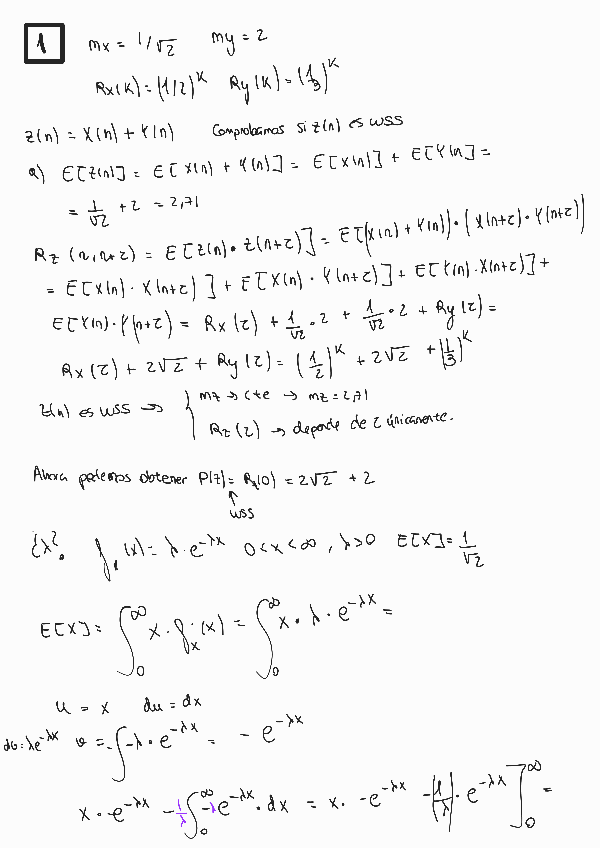 1 mx = 1/√2 my = 2
Rx(K) = (1/2)^K Ry(K) = (1/3)^K
z(n) = X(n) + Y(n) Comprobamos si z(n) es WSS
a) E[z(n)] = E[X(n) + Y(n)] = E[X(n)] + E[Y(n)] =
= 1/√2 + 2 = 2,71
Rz(n, n+τ) = E[z(n)·z(n+τ)] = E[(X(n) + Y(n))·(X(n+τ)·Y(n+τ))]
= E[X(n)·X(n+τ)] + E[X(n)·Y(n+τ)] + E[Y(n)·X(n+τ)] +
E[Y(n)·Y(n+τ) = Rx(τ) + 1/√2·2 + 1/√2·2 + Ry(τ) =
Rx(τ) + 2√2 + Ry(τ) = (1/2)^K + 2√2 + (1/3)^K
z(n) es WSS → { mz → cte → mz = 2,71
Rz(τ) → depende de τ únicamente.
Ahora podemos obtener P(z) = Rz(0) = 2√2 + 2
↑
WSS
(x) = λ·e^-λx 0<x<∞, λ>0 E[X] = 1/√2
E[X] = ∫₀^∞ x·fx(x) = ∫₀^∞ x·λ·e^-λx =
u = x du = dx
dv = λe^-λx v = -∫-λ·e^-λx = -e^-λx
x·e^-λx - 1/λ ∫₀^∞ -λe^-λx·dx = x·-e^-λx - (1/λ)·e^-λx ]₀^∞ =